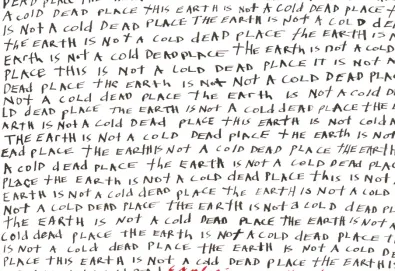 DEAD PLACE THE
A COLD DEAD PLACE THIS EARTH IS NOT A Cold DEAD PLACE t
IS NOT A COLD DEAD PLACE THE EARTH IS NOT A COLD dE
tHE EARTH IS NOT A COLD DEAD PLACE tHE EARTH IS N
EARtH IS NOT A cold DEAD PLACE tHE EARTH IS NOT A COLD
PLACE THIS IS NOT A COLD DEAD PLACE IT IS NOT A
DEAd PLACE THE EARTH IS NOT A COLD DEAD PLA
NOT A COLD dEAD PLACE THE EARTH IS NOT A COLD D
LD DEAD PLACE THE EARTH IS NOT A Cold dEAD PLACE tHE E
ARTH IS NOt A Cold DEAd PLACE tHIS EARTH IS NOT Cold A
THE EARTH IS NOT A COLD DEAd PlACE tHE EARTH IS NOt
EAd PLACE THE EARTH IS NOT A COLD DEAD PLACE THE EARTH
A COLD dEAD PLACE tHE EARTH IS NOT A COLD DEAD PLAC
PlAcE tHE EARTH IS NOT A COLD DEAD PLACE tHIS IS NOT
EARTH IS NOT A COLD DEAD PLACE THE EARTH IS NOT A COLD
NOT A COLD DEAD PLACE THE EARTH IS NOT a COLD dEAD PL
tHE EARTH IS NOT A Cold DEAD PLACE THE EARTH IS NOT A
Cold dEAd PLACE tHE EARTH IS NOT A COLD DEAD PLACE T
IS NOT A COLD dEAD PLACE tHE EARTH IS NOT A COLD DE
PLACE THIS EARTH IS NOT A COLD DEAD PLACE THE EARTH I